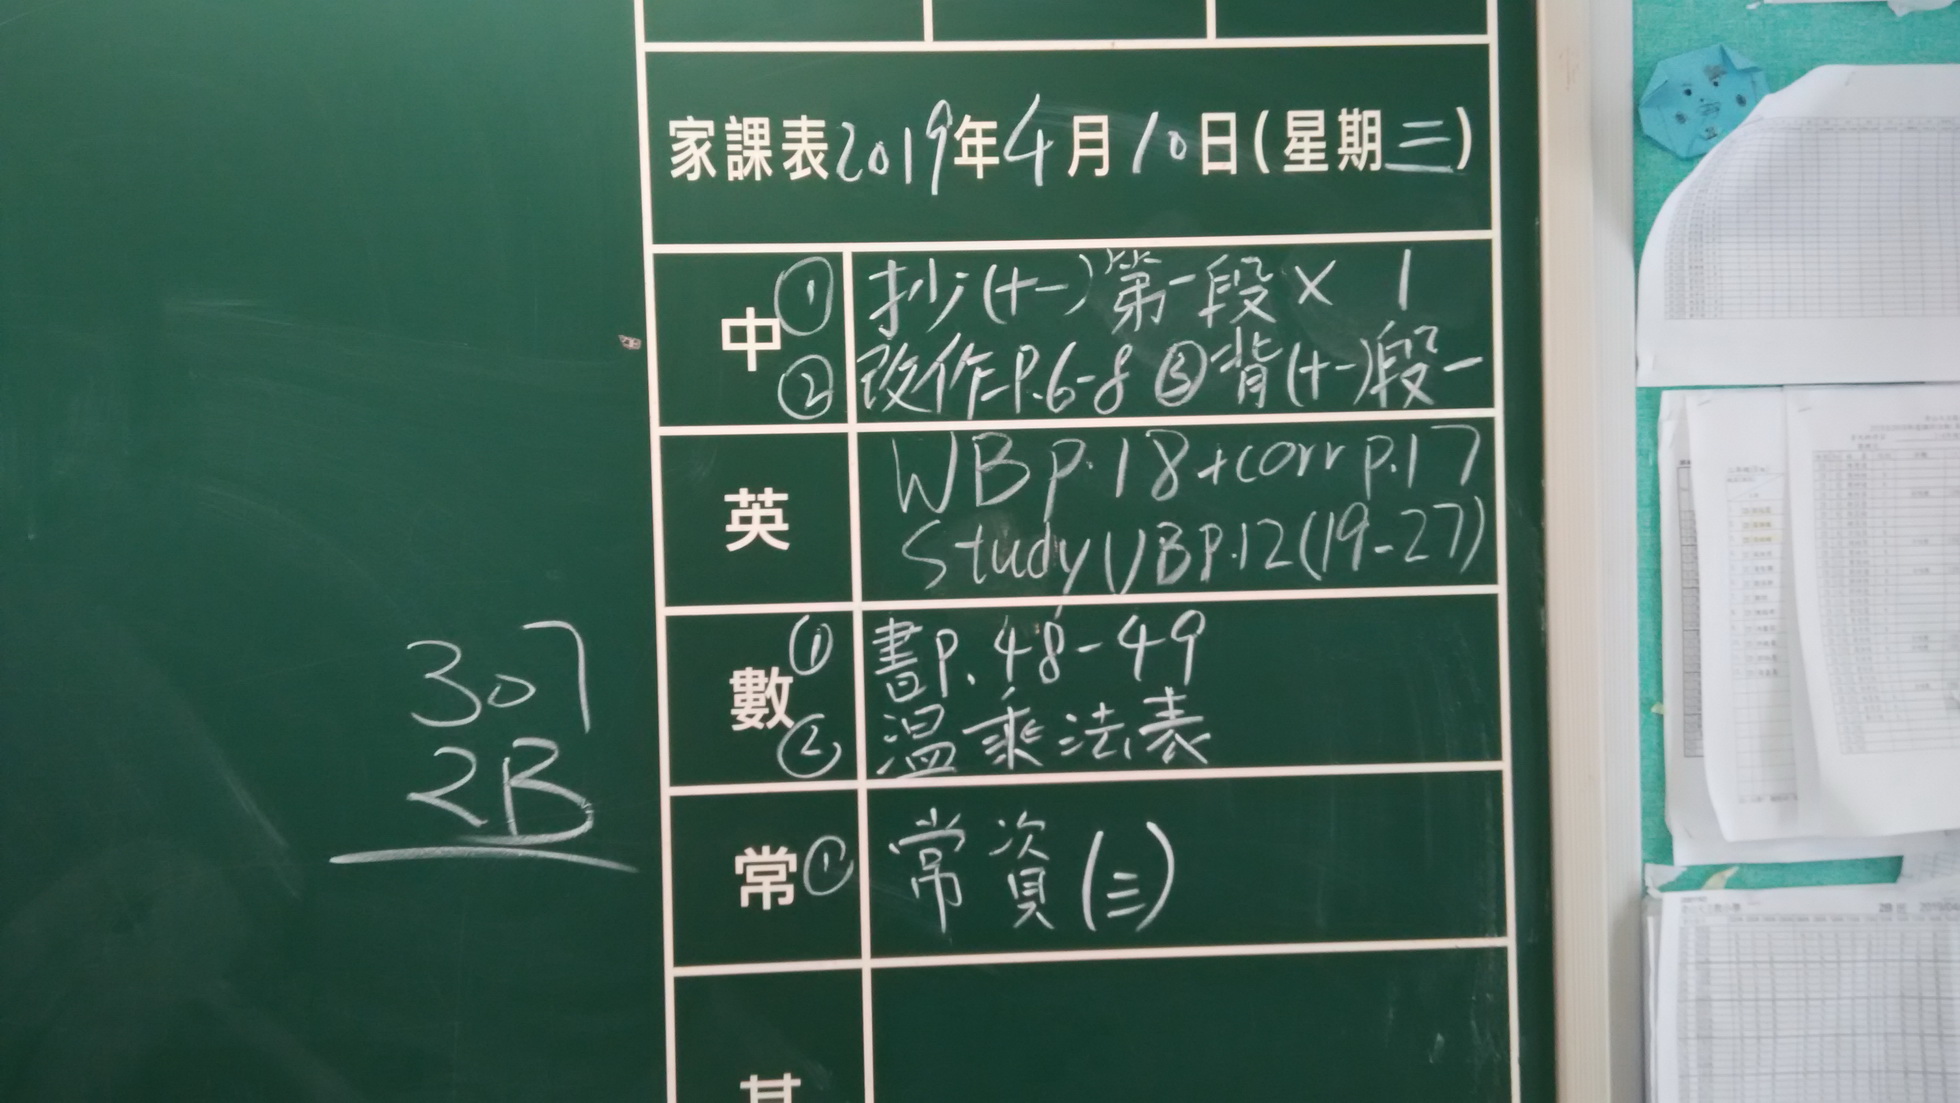 家課表2019年4月10日(星期三)
中 ① 抄(十一)第一段 × 1
② 改作P.6-8 ③背(十一)段一
英 WB p.18+corr p.17
Study UB P.12(19-27)
數 ① 書P.48-49
② 溫乘法表
常 ① 常資(三)
307
2B